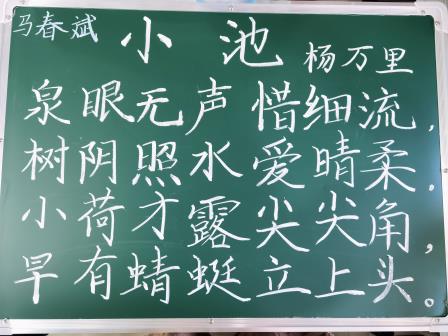 马春斌
小池
杨万里
泉眼无声惜细流，
树阴照水爱晴柔．
小荷才露尖尖角，
早有蜻蜓立上头。